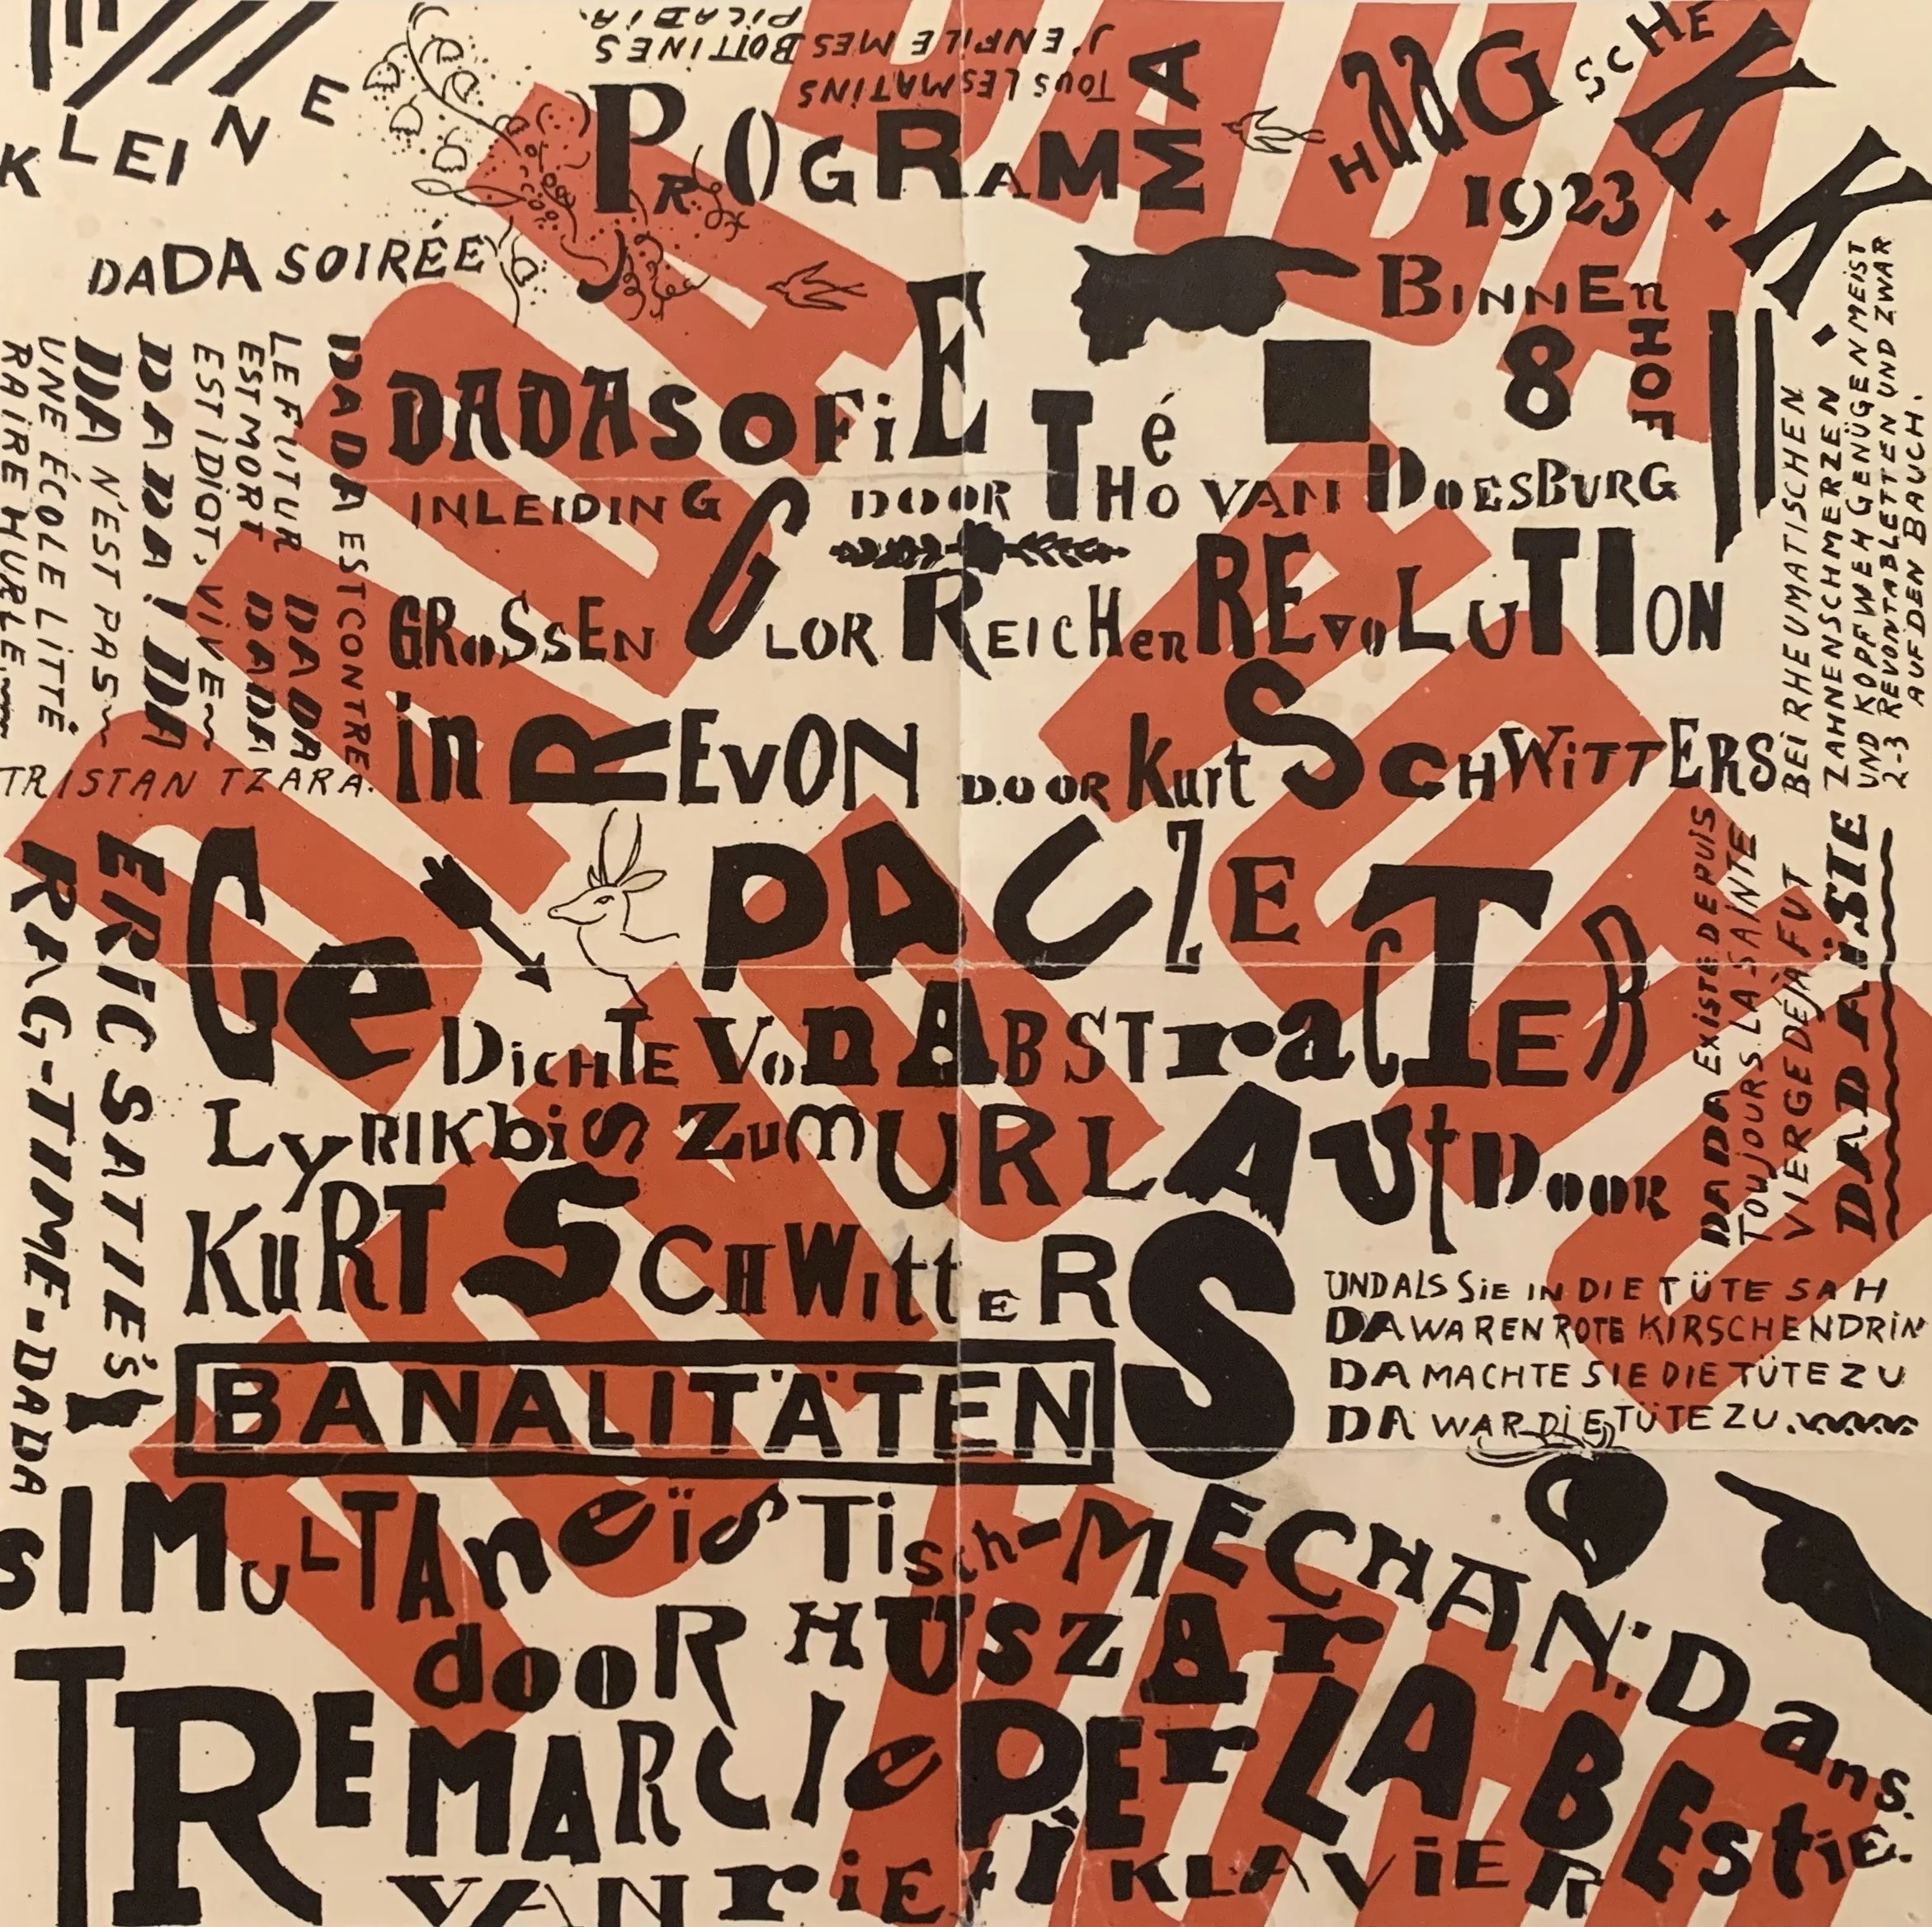 KLEINE
DADA SOIRÉE
PICABIA.
J'ENFILE MES BOTTINES
TOUS LES MATINS
PROGRAMMA
HAAGSCHE K.K.
1923
BINNENHOF
8
DADASOFIE
INLEIDING DOOR Thé THO VAN DOESBURG
GROSSEN GLORREICHEN REVOLUTION
in REVON DOOR Kurt SCHWITTERS
GePACZE
DICHTE VON ABSTraCTER
LyRIK biS ZumURLAUt DOOR
KuRT SCHWittERS
BANALITÄTEN
SIMuLTAneïsTisch-MECHAN: Dans.
dooR HUSZAr
TRE MARCIe PEr LA BEstiE.
VAN riEti KLAVIER
DADA EST CONTRE
LE FUTUR DADA
EST MORT DADA
EST IDIOT, VIVE
DADA! DA
DA N'EST PAS
UNE ÉCOLE LITTÉ
RAIRE HURLE
TRISTAN TZARA.
ERIC SATIE'S
RAG-TIME-DADA
BEI RHEUMATISCHEN
ZAHNENSCHMERZEN
UND KOPFWEH GENÜGEN MEIST
2-3 REVONTABLETTEN UND ZWAR
AUF DEN BAUCH.
DADA EXISTE DEPUIS
TOUJOURS LA SAINTE
VIERGE DÉJÀ FUT
DADAÏSIE
UND ALS SiE IN DIE TÜTE SAH
DA WAREN ROTE KIRSCHEN DRIN
DA MACHTE SIE DIE TÜTE ZU
DA WAR DIE TÜTE ZU.
DADA
DADA
DADA